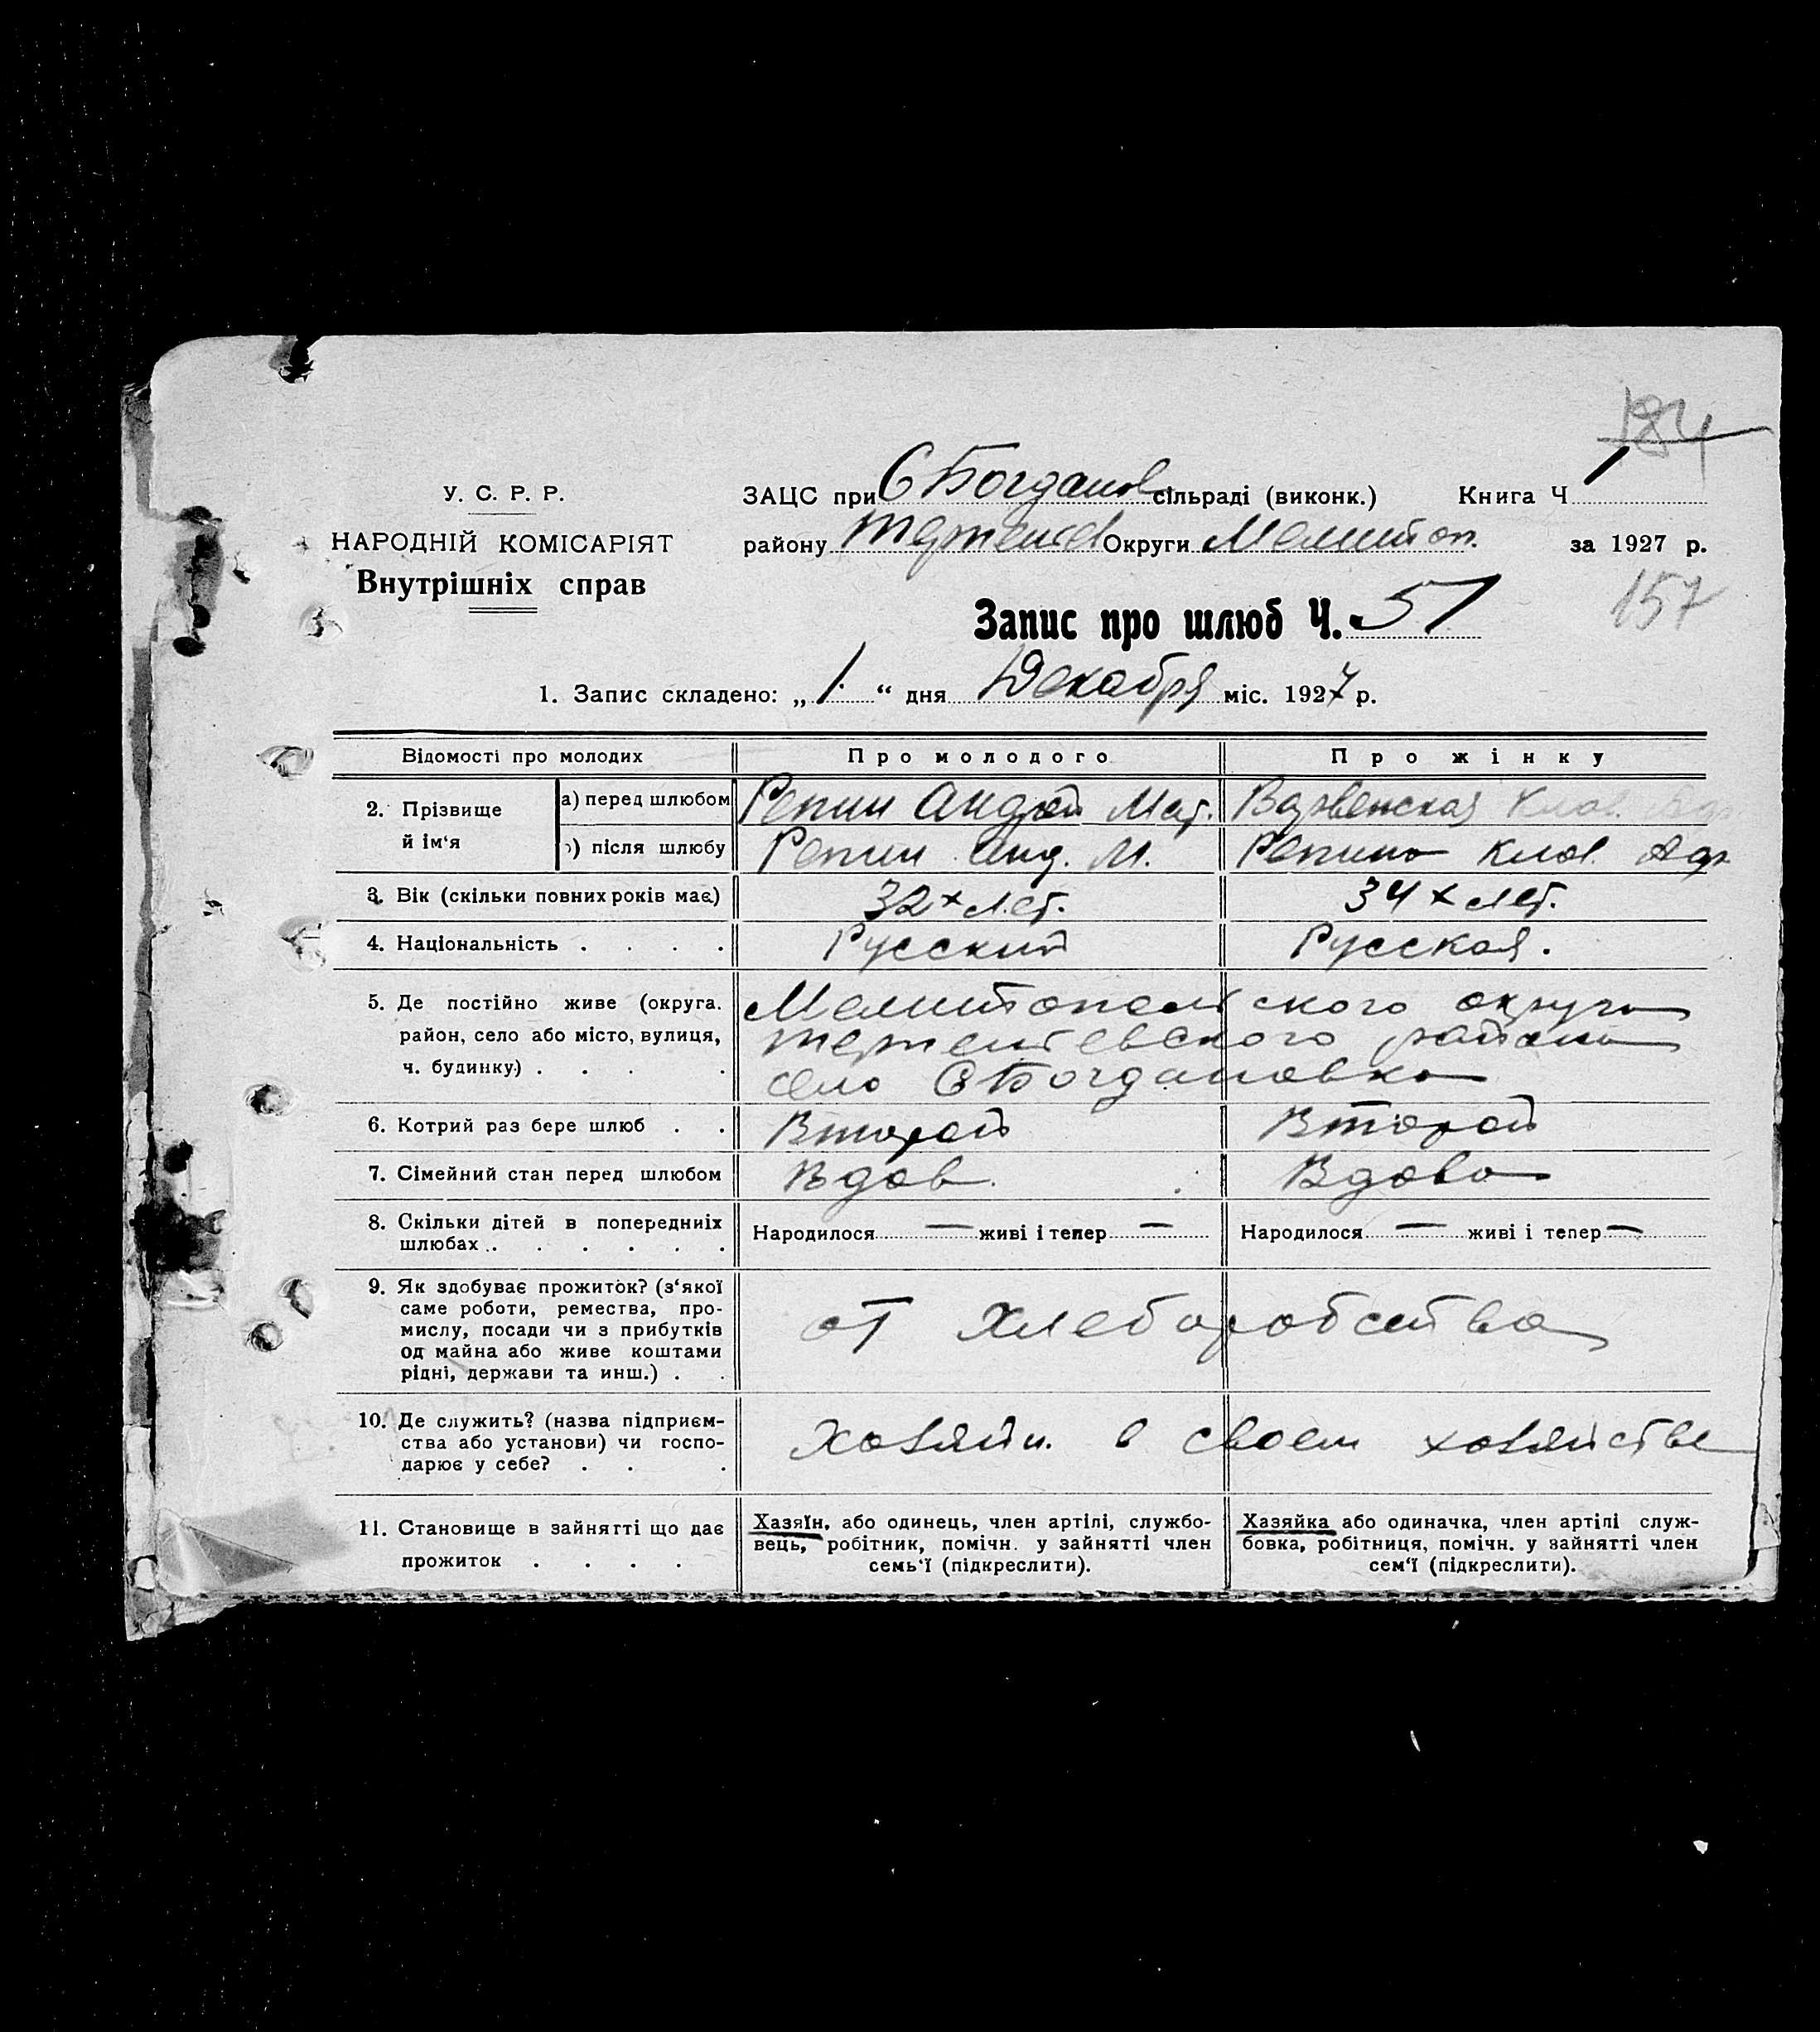 184
У. С. Р. Р.
НАРОДНІЙ КОМІСАРІЯТ
Внутрішніх справ
ЗАЦС при С Богданов сільраді (виконк.) Книга Ч 1
району Терпеньев Округи Мелитоп. за 1927 р.
157
Запис про шлюб Ч. 51
1. Запис складено: „ 1. “ дня Декабря міс. 1927 р.
Відомості про молодих Про молодого Про жінку
2. Прізвище й ім'я
а) перед шлюбом Репин Андрей Мат.
б) після шлюбу Репин Анд. М. Репина Клав.
3. Вік (скільки повних років має) 32х лет. 34х лет.
4. Національність . . . . Русский Русская.
5. Де постійно живе (округа. Мелитопольского округа
район, село або місто, вулиця, терпеньевского района
ч. будинку) . . . . село С Богдановка
6. Котрий раз бере шлюб . . Второй Второй
7. Сімейний стан перед шлюбом Вдов. Вдова
8. Скільки дітей в попередниіх Народилося — живі і тепер — Народилося — живі і тепер —
шлюбах . . . . . .
9. Як здобуває прожиток? (з'якої
саме роботи, ремества, про-
мислу, посади чи з прибутків от хлеборобства
од майна або живе коштами
рідні, держави та инш.) . .
10. Де служить? (назва підприєм-
ства або установи) чи госпо- Хозяйн. в своем хозяйстве
дарює у себе? . . .
11. Становище в зайнятті що дає
прожиток . . . .
Хазяїн, або одинець, член артілі, службо-
вець, робітник, помічн. у зайнятті член
семь'ї (підкреслити).
Хазяйка або одиначка, член артілі служ-
бовка, робітниця, помічн. у зайнятті член
сем'ї (підкреслити).